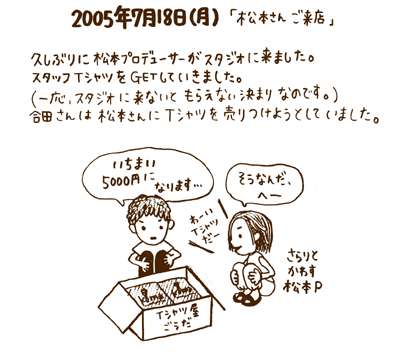 2005年7月18日(月)「松本さん ご来店」
久しぶりに松本プロデューサーがスタジオに来ました。
スタッフTシャツをGETしていきました。
(一応、スタジオに来ないともらえない決まりなのです。)
合田さんは松本さんにTシャツを売りつけようとしていました。
いちまい
5000円に
なります…
そうなんだ、
へー
わーい
Tシャツ
だー
さらりと
かわす
松本P
Tシャツ屋
ごうだ